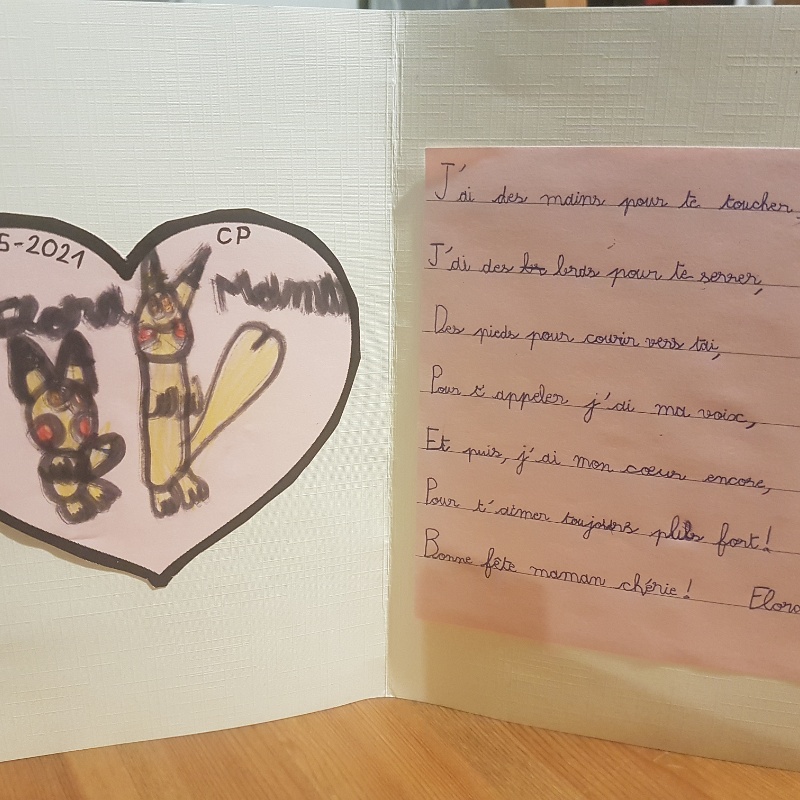 5-2021
CP
Elora
Mama
J'ai des mains pour te toucher,
J'ai des bras pour te serrer,
Des pieds pour courir vers toi,
Pour t'appeler j'ai ma voix,
Et puis, j'ai mon cœur encore,
Pour t'aimer toujours plus fort!
Bonne fête maman chérie! Elora